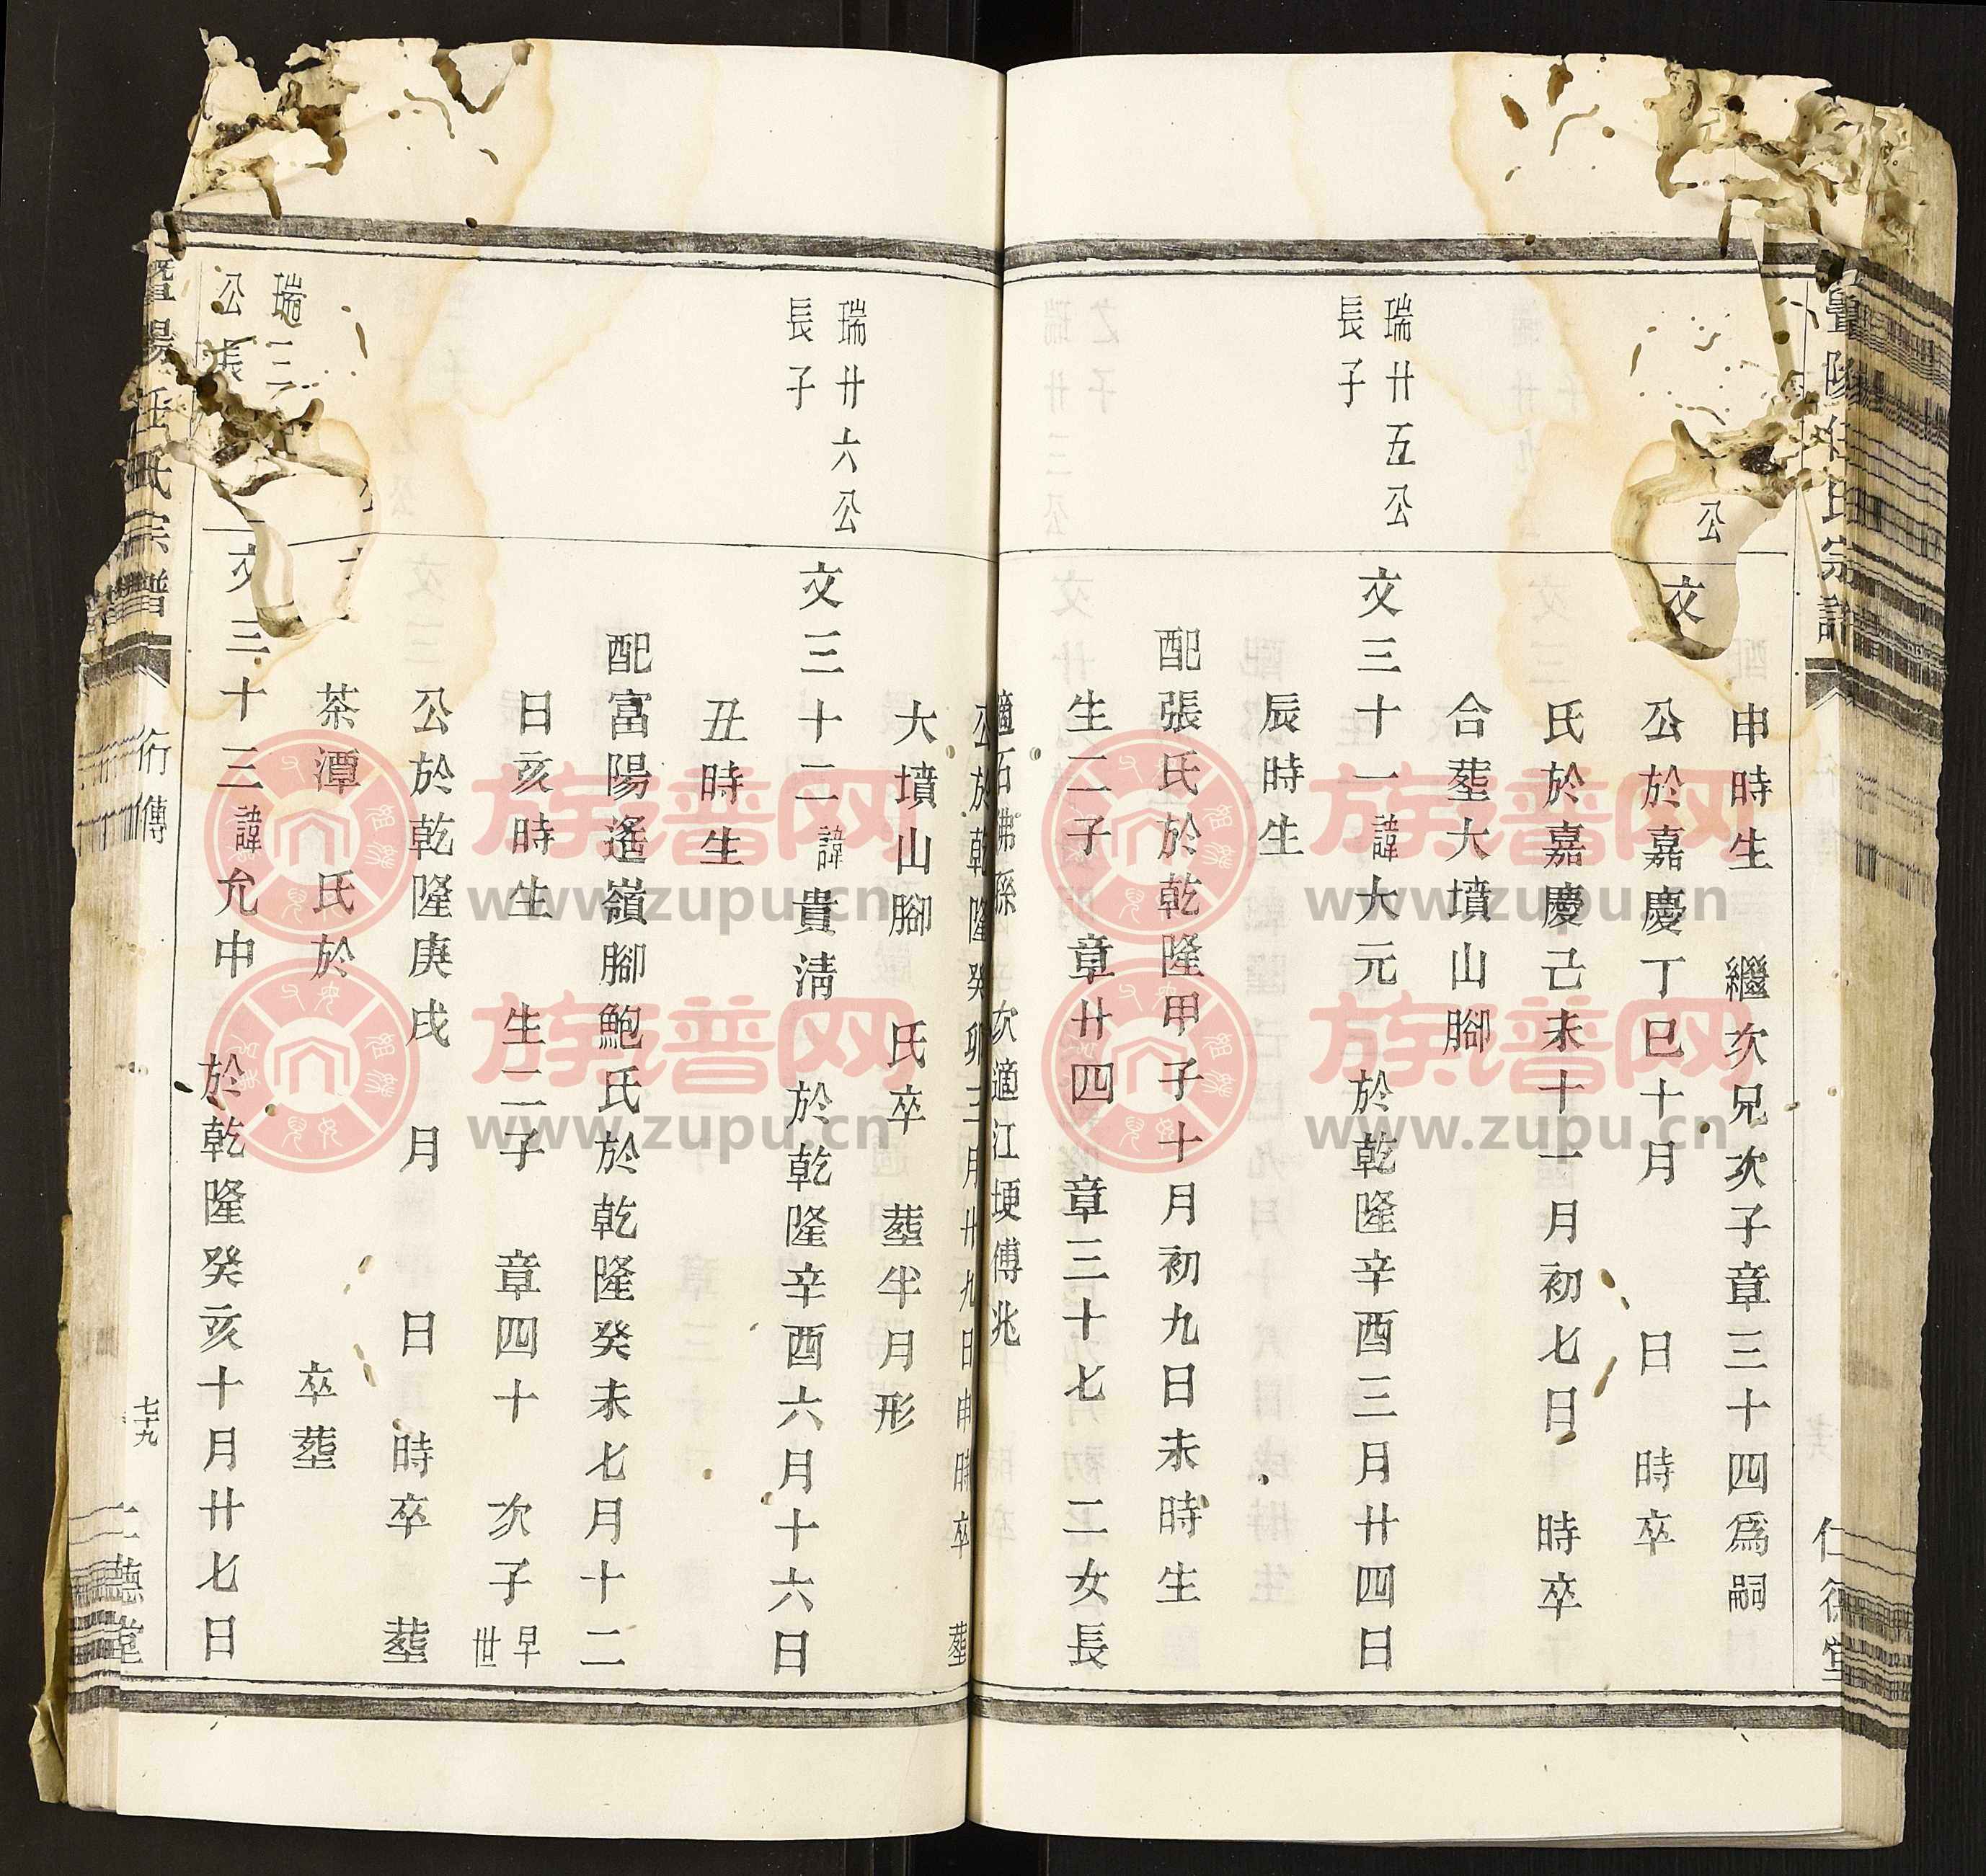 暨陽任氏宗譜
仁德堂
公
文
申時生　繼次兄次子章三十四爲嗣
公於嘉慶丁巳十月　日　時卒
氏於嘉慶己未十一月初七日　時卒
合塟大墳山腳
瑞廿五公
長子
文三十一諱大元　於乾隆辛酉三月廿四日
辰時生
配張氏於乾隆甲子十月初九日未時生
生二子　章廿四　章三十七　二女長
適石佛孫　次適江埂傅兆
公於乾隆癸卯三月廿九日申時卒　塟
大墳山腳　氏卒　塟半月形
瑞廿六公
長子
文三十二諱貴清　於乾隆辛酉六月十六日
丑時生
配富陽遙嶺腳鮑氏於乾隆癸未七月十二
日亥時生　生二子　章四十　次子早世
公於乾隆庚戌　月　日　時卒　塟
茶潭　氏於　卒塟
瑞三
公長
文三十三諱允中　於乾隆癸亥十月廿七日
暨陽任氏宗譜
行傳
七十九
仁德堂
族谱网
www.zupu.cn
族谱网
www.zupu.cn
族谱网
www.zupu.cn
族谱网
www.zupu.cn